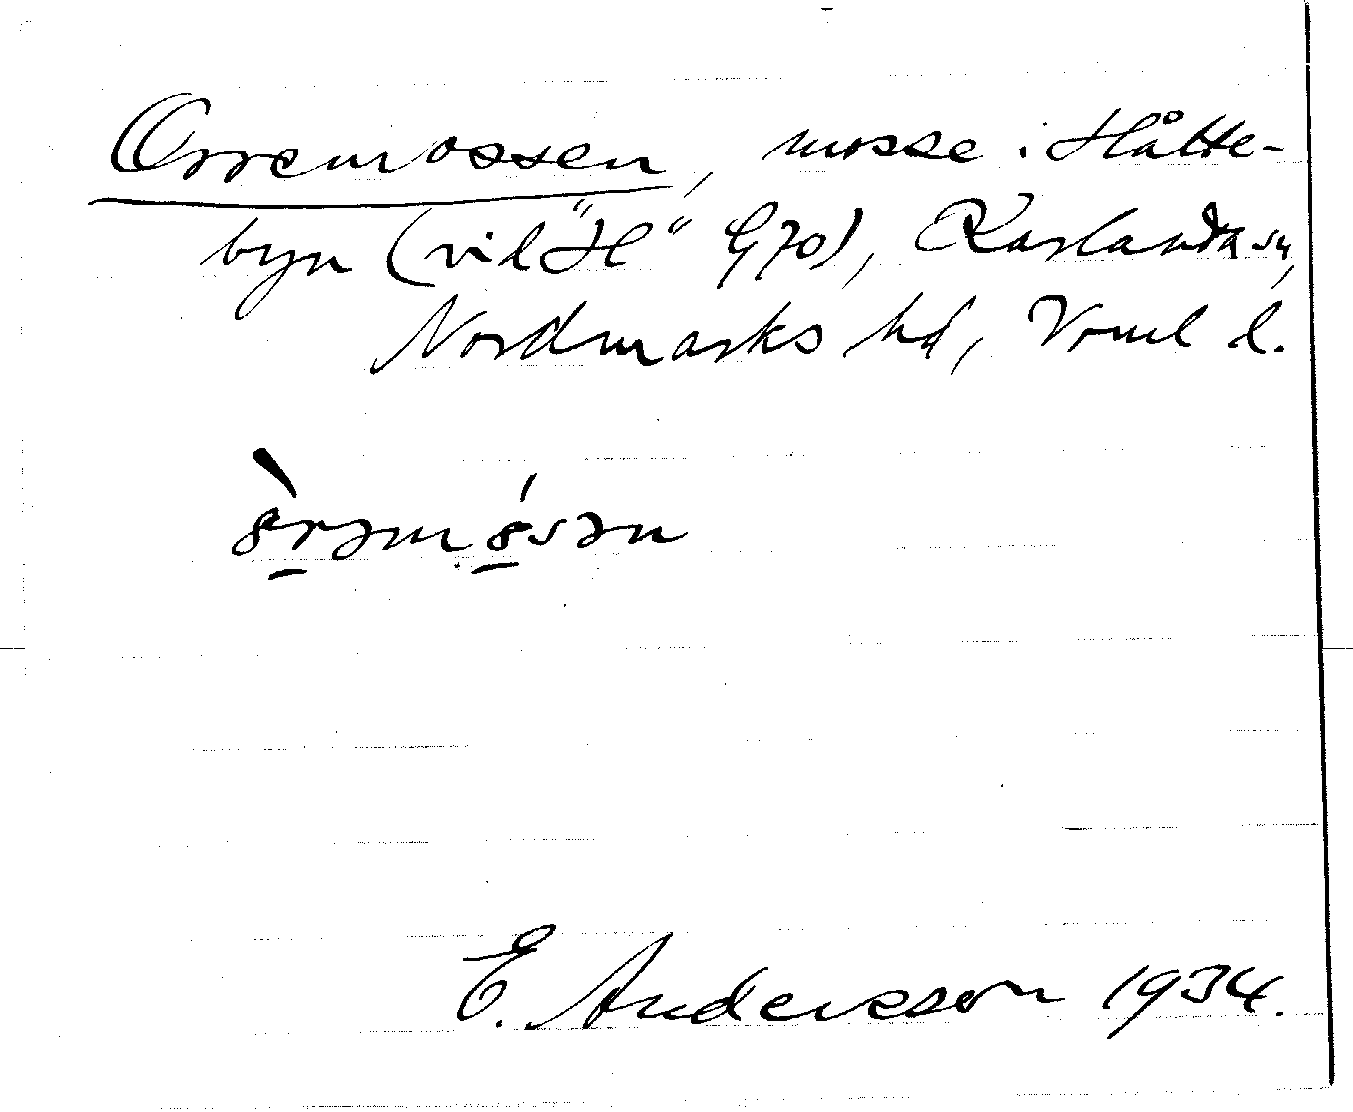 Orremossen, mosse i Håtte-
byn (vid "H" G70), Karlanda sn,
Nordmarks hd, Vrml l.
E. Andersson 1934.